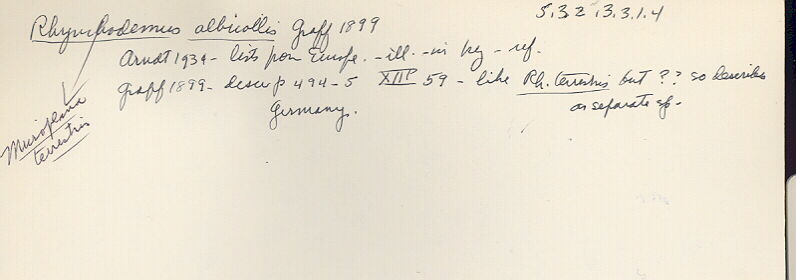 Rhynchodemus albicollis Graff 1899
5.3.2.13.3.1.4
Arndt 1934 - lists from Europe. - ill. - in key - ref.
Graff 1899 - descr p 494-5 XIII 59 - like Rh. terrestris but ?? so describes
as separate sp.
Germany.
Microplana
terrestris